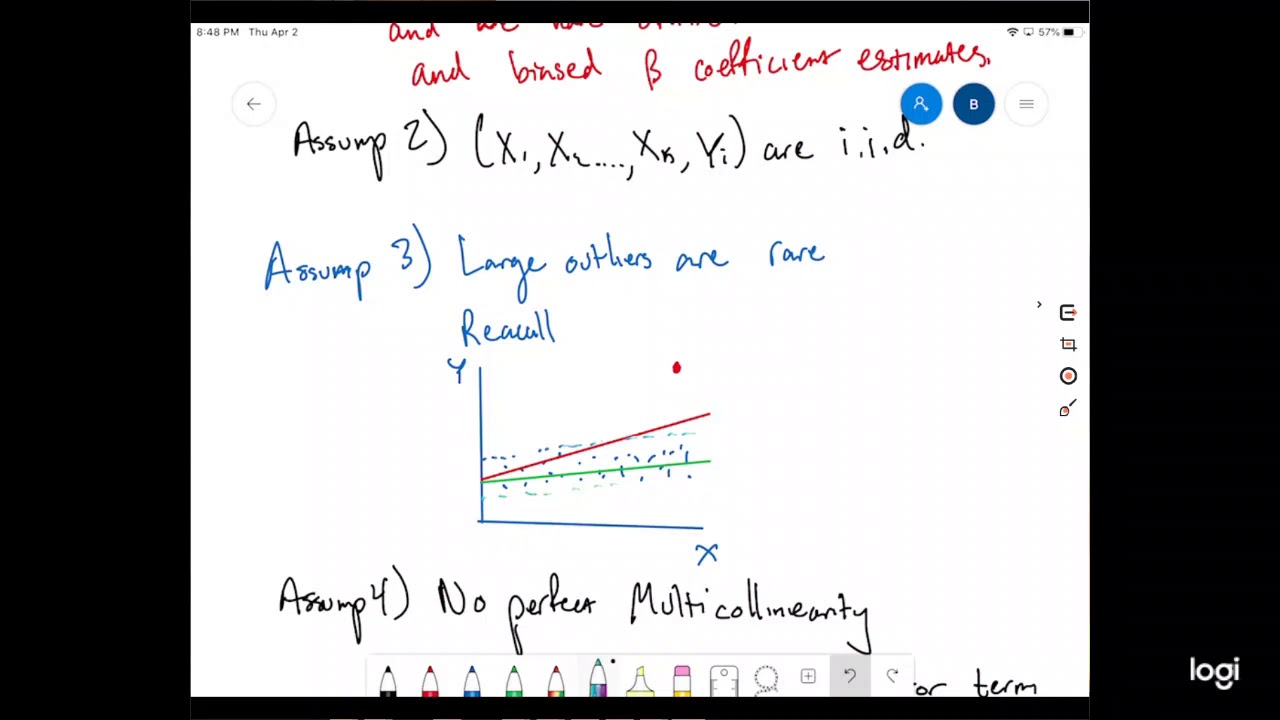 8:48 PM Thu Apr 2
57%
and we have
and biased β coefficient estimates.
B
Assump 2) (X₁, X₂...., Xₖ, Yᵢ) are i.i.d.
Assump 3) Large outliers are rare
Reacull
Y
X
Assump 4) No perfect Multicollinearity
or term
logi